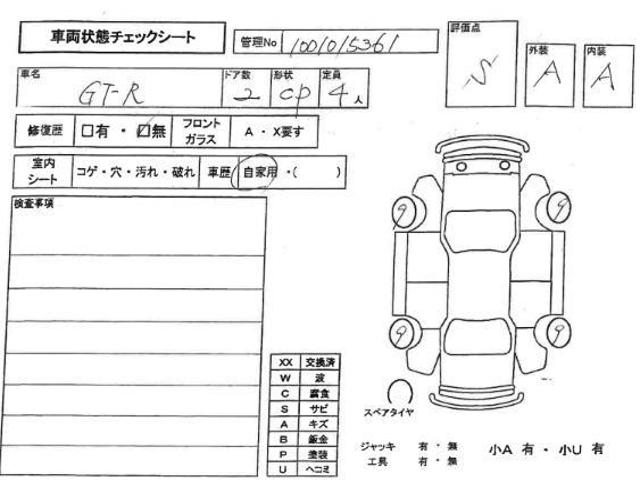 車両状態チェックシート
管理No 1001015361
評価点 S
外装 A
内装 A
車名 GT-R
ドア数 2
形状 CP
定員 4 人
修復歴 □有・☑無
フロントガラス A・X要す
室内シート コゲ・穴・汚れ・破れ
車歴 自家用・( )
検査事項
9 9
9 9
XX 交換済
W 波
C 腐食
S サビ
A キズ
B 鈑金
P 塗装
U ヘコミ
スペアタイヤ
ジャッキ 有・無
工具 有・無
小A 有・小U 有